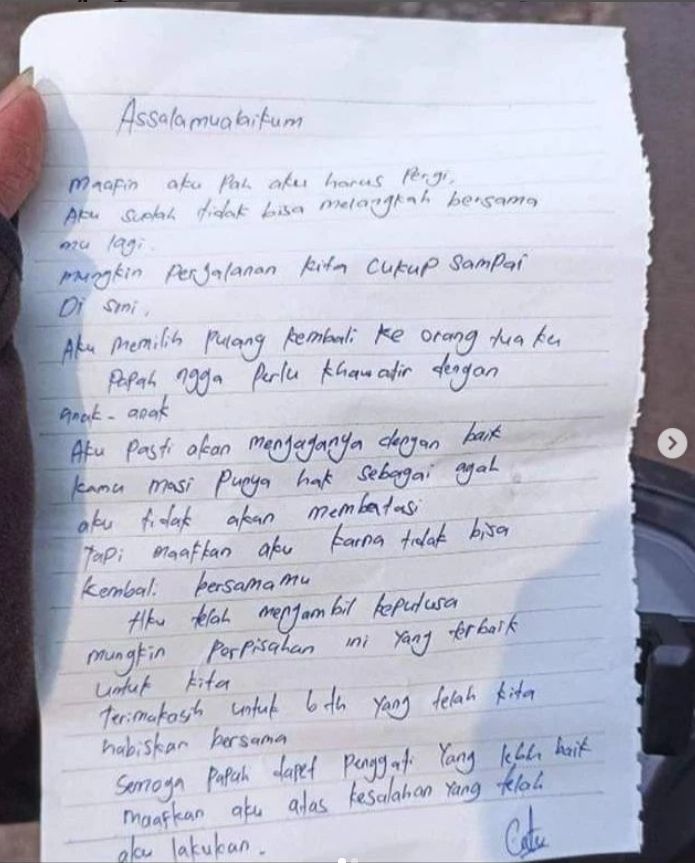 Assalamualaikum
Maafin aku Pah aku harus Pergi.
Aku sudah tidak bisa melangkah bersama
mu lagi.
mungkin Perjalanan kita cukup sampai
Di sini.
Aku memilih pulang kembali ke orang tua ku
Papah ngga Perlu khawatir dengan
anak-anak
Aku pasti akan menjaganya dengan baik
kamu masi Punya hak sebagai ayah
aku tidak akan membatasi
Tapi maafkan aku karna tidak bisa
kembali bersamamu
Aku telah mengambil keputusa
mungkin Perpisahan ini yang terbaik
untuk kita
Terimakasih untuk 6 th yang telah kita
habiskan bersama
Semoga Papah dapet Penggati Yang lebih baik
maafkan aku atas kesalahan yang telah
aku lakukan.